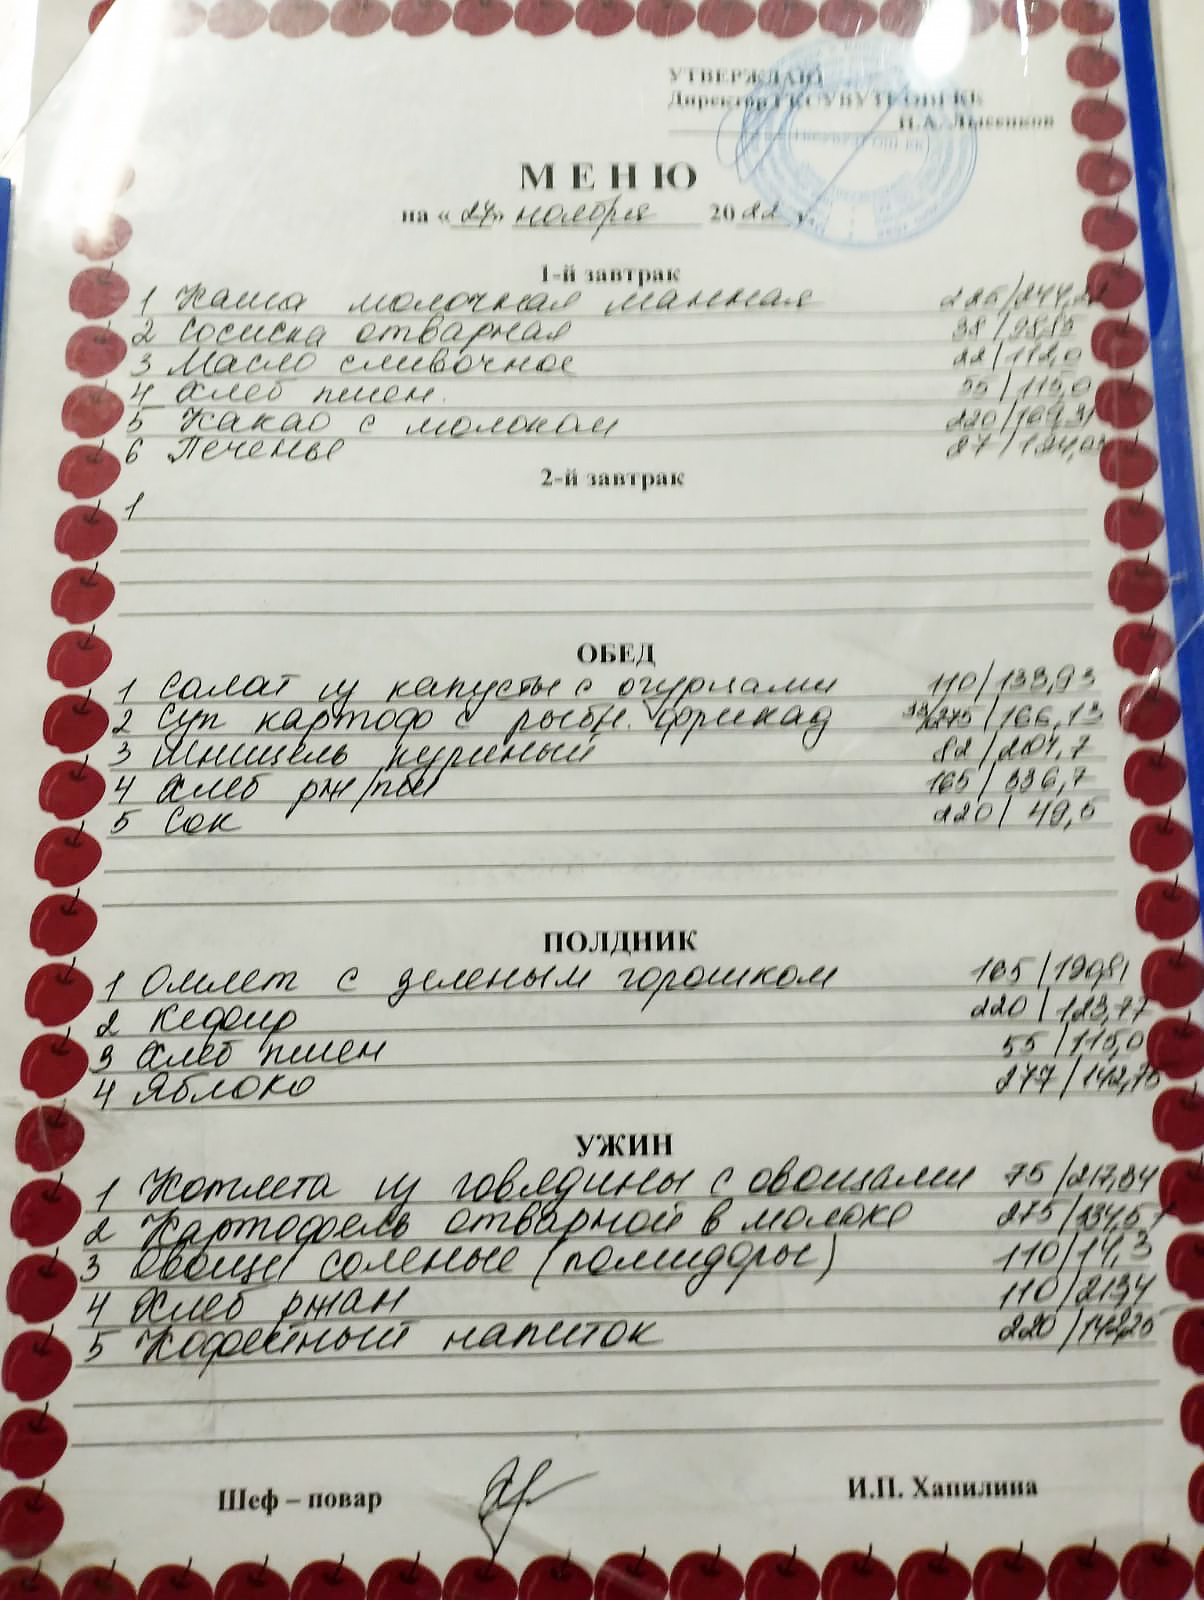 УТВЕРЖДАЮ
Директор
Н.А. Лысенков
МЕНЮ
на « 24» ноября 2022
1-й завтрак
1 Каша молочная манная 225/244,22
2 Сосиска отварная 38/98,85
3 Масло сливочное 22/112,0
4 Хлеб пшен. 55/115,0
5 Какао с молоком 220/169,31
6 Печенье 27/124,03
2-й завтрак
1
ОБЕД
1 Салат из капусты с огурцами 110/133,93
2 Суп картоф с рыбн. фрикад 33/275/166,13
3 Шницель куриный 82/207,7
4 Хлеб рж/пш 165/336,7
5 Сок 220/49,5
ПОЛДНИК
1 Омлет с зеленым горошком 165/190,81
2 Кефир 220/123,77
3 Хлеб пшен 55/115,0
4 Яблоко 277/142,75
УЖИН
1 Котлета из говядины с овощами 75/217,84
2 Картофель отварной в молоке 275/
3 Овощи соленые (помидоры) 110/14,3
4 Хлеб ржан 110/213,4
5 Кофейный напиток 220/
Шеф – повар
И.П. Хапилина